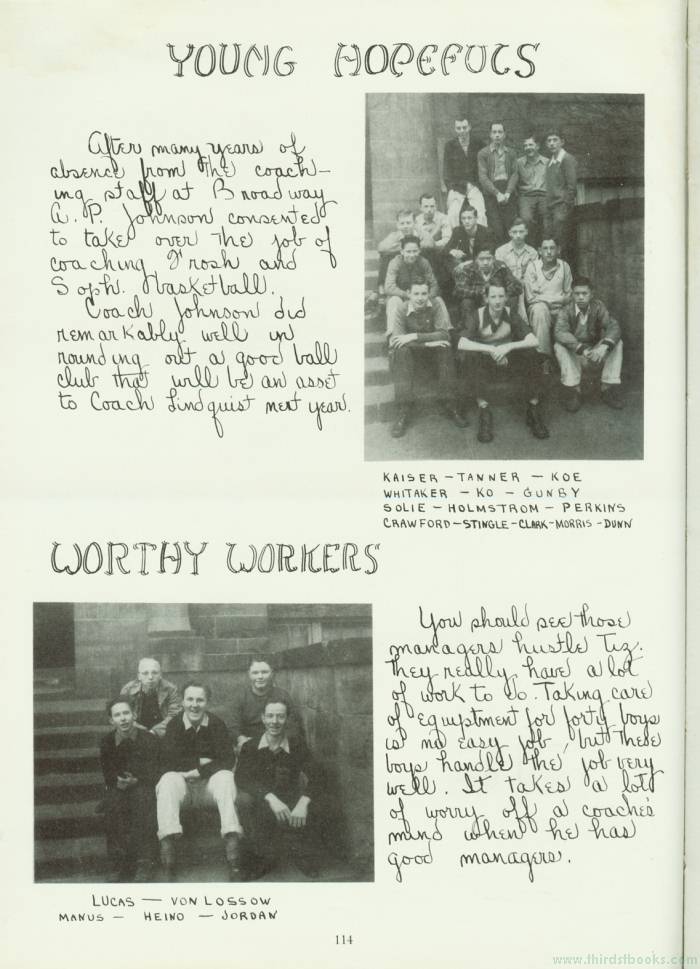 YOUNG HOPEFULS
After many years of
absence from the coach-
ing staff at Broadway
A. P. Johnson consented
to take over the job of
coaching Frosh and
Soph. Basketball.
Coach Johnson did
remarkably well in
rounding out a good ball
club that will be an asset
to Coach Lindquist next year.
KAISER - TANNER - KOE
WHITAKER - KO - GUNBY
SOLIE - HOLMSTROM - PERKINS
CRAWFORD - STINGLE - CLARK - MORRIS - DUNN
WORTHY WORKERS
You should see those
managers hustle Tiz.
They really have a lot
of work to do. Taking care
of equiptment for forty boys
is no easy job, but these
boys handle the job very
well. It takes a lot
of worry off a coache's
mind when he has
good managers.
LUCAS - VON LOSSOW
MANUS - HEINO - JORDAN
114
www.thirdstbooks.com